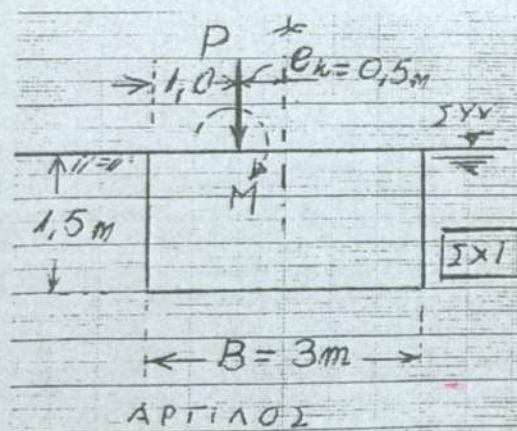 P
1,0 eₖ=0,5м
ΣΥΥ
M
1,5 м
ΣΧ1
B = 3m
ΑΡΓΙΛΟΣ